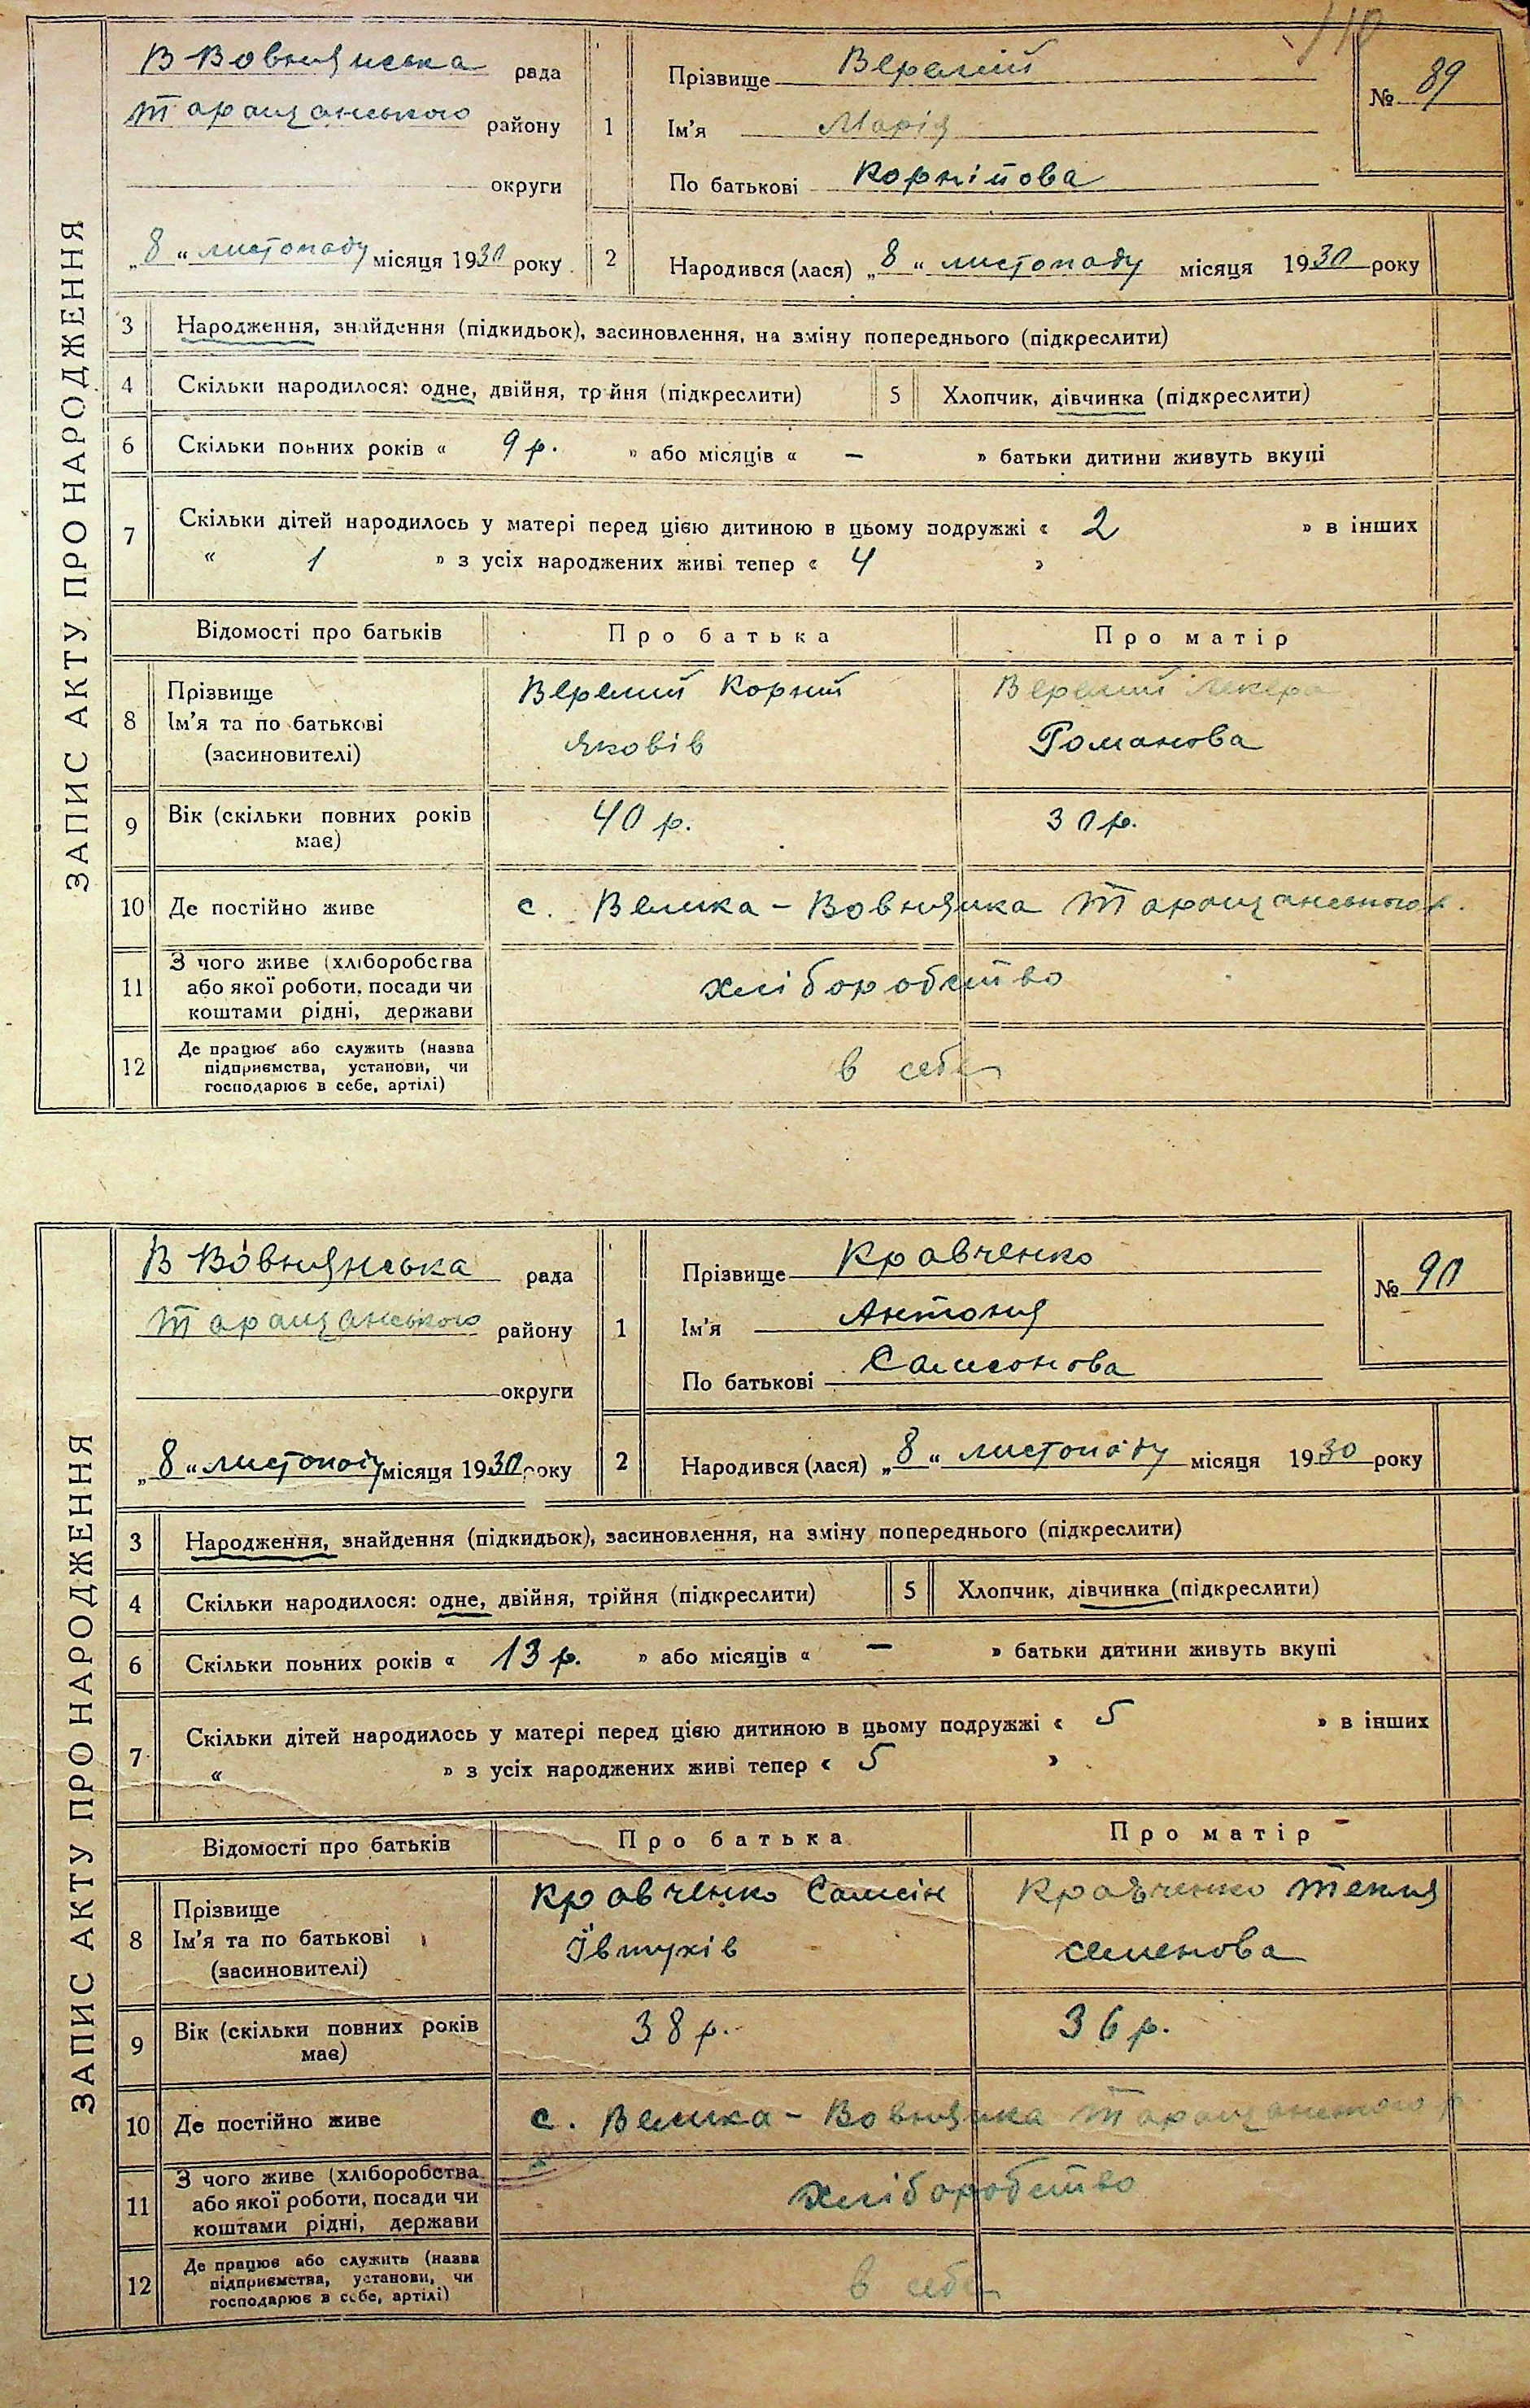 110
ЗАПИС АКТУ ПРО НАРОДЖЕННЯ
В Вовнянська рада
Таращанського району
округи
„8“ листопаду місяця 1930 року
1
Прізвище Веремій
Ім'я Марія
По батькові Корнійова
№ 89
2 Народився (лася) „8“ листопаду місяця 1930 року
3 Народження, знайдення (підкидьок), засиновлення, на зміну попереднього (підкреслити)
4 Скільки народилося: одне, двійня, трійня (підкреслити) 5 Хлопчик, дівчинка (підкреслити)
6 Скільки повних років « 9 р. » або місяців « — » батьки дитини живуть вкупі
7 Скільки дітей народилось у матері перед цією дитиною в цьому подружжі « 2 » в інших
« 1 » з усіх народжених живі тепер « 4 »
Відомості про батьків Про батька Про матір
8 Прізвище
Ім'я та по батькові
(засиновителі)
Веремий Корний
Яковів
Веремий Лекера
Романова
9 Вік (скільки повних років має) 40 р. 30 р.
10 Де постійно живе с. Велика-Вовнянка Таращанського р.
11 З чого живе (хліборобства
або якої роботи, посади чи
коштами рідні, держави
хліборобство
12 Де працює або служить (назва
підприємства, установи, чи
господарює в себе, артілі)
в себе
ЗАПИС АКТУ ПРО НАРОДЖЕННЯ
В Вовнянська рада
Таращанського району
округи
„8“ листопаду місяця 1930 року
1
Прізвище Кравченко
Ім'я Антоня
По батькові Самсонова
№ 90
2 Народився (лася) „8“ листопаду місяця 1930 року
3 Народження, знайдення (підкидьок), засиновлення, на зміну попереднього (підкреслити)
4 Скільки народилося: одне, двійня, трійня (підкреслити) 5 Хлопчик, дівчинка (підкреслити)
6 Скільки повних років « 13 р. » або місяців « — » батьки дитини живуть вкупі
7 Скільки дітей народилось у матері перед цією дитиною в цьому подружжі « 5 » в інших
« » з усіх народжених живі тепер « 5 »
Відомості про батьків Про батька Про матір
8 Прізвище
Ім'я та по батькові
(засиновителі)
Кравченко Самсін
Ївтухів
Кравченко Текля
Семенова
9 Вік (скільки повних років має) 38 р. 36 р.
10 Де постійно живе с. Велика-Вовнянка Таращанського р.
11 З чого живе (хліборобства
або якої роботи, посади чи
коштами рідні, держави
хліборобство
12 Де працює або служить (назва
підприємства, установи, чи
господарює в себе, артілі)
в себе